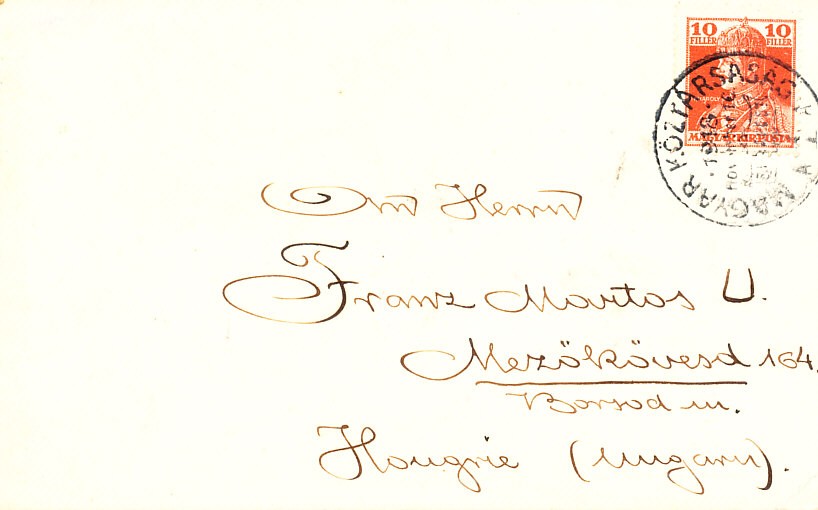 10 10
FILLÉR FILLÉR
KÁROLY
MAGYAR KIR. POSTA
MAGYAR KÖZTÁRSASÁG
1918
An Herrn
Franz Martos U.
Mezőkövesd 164.
Borsod m.
Hongrie (Ungarn).